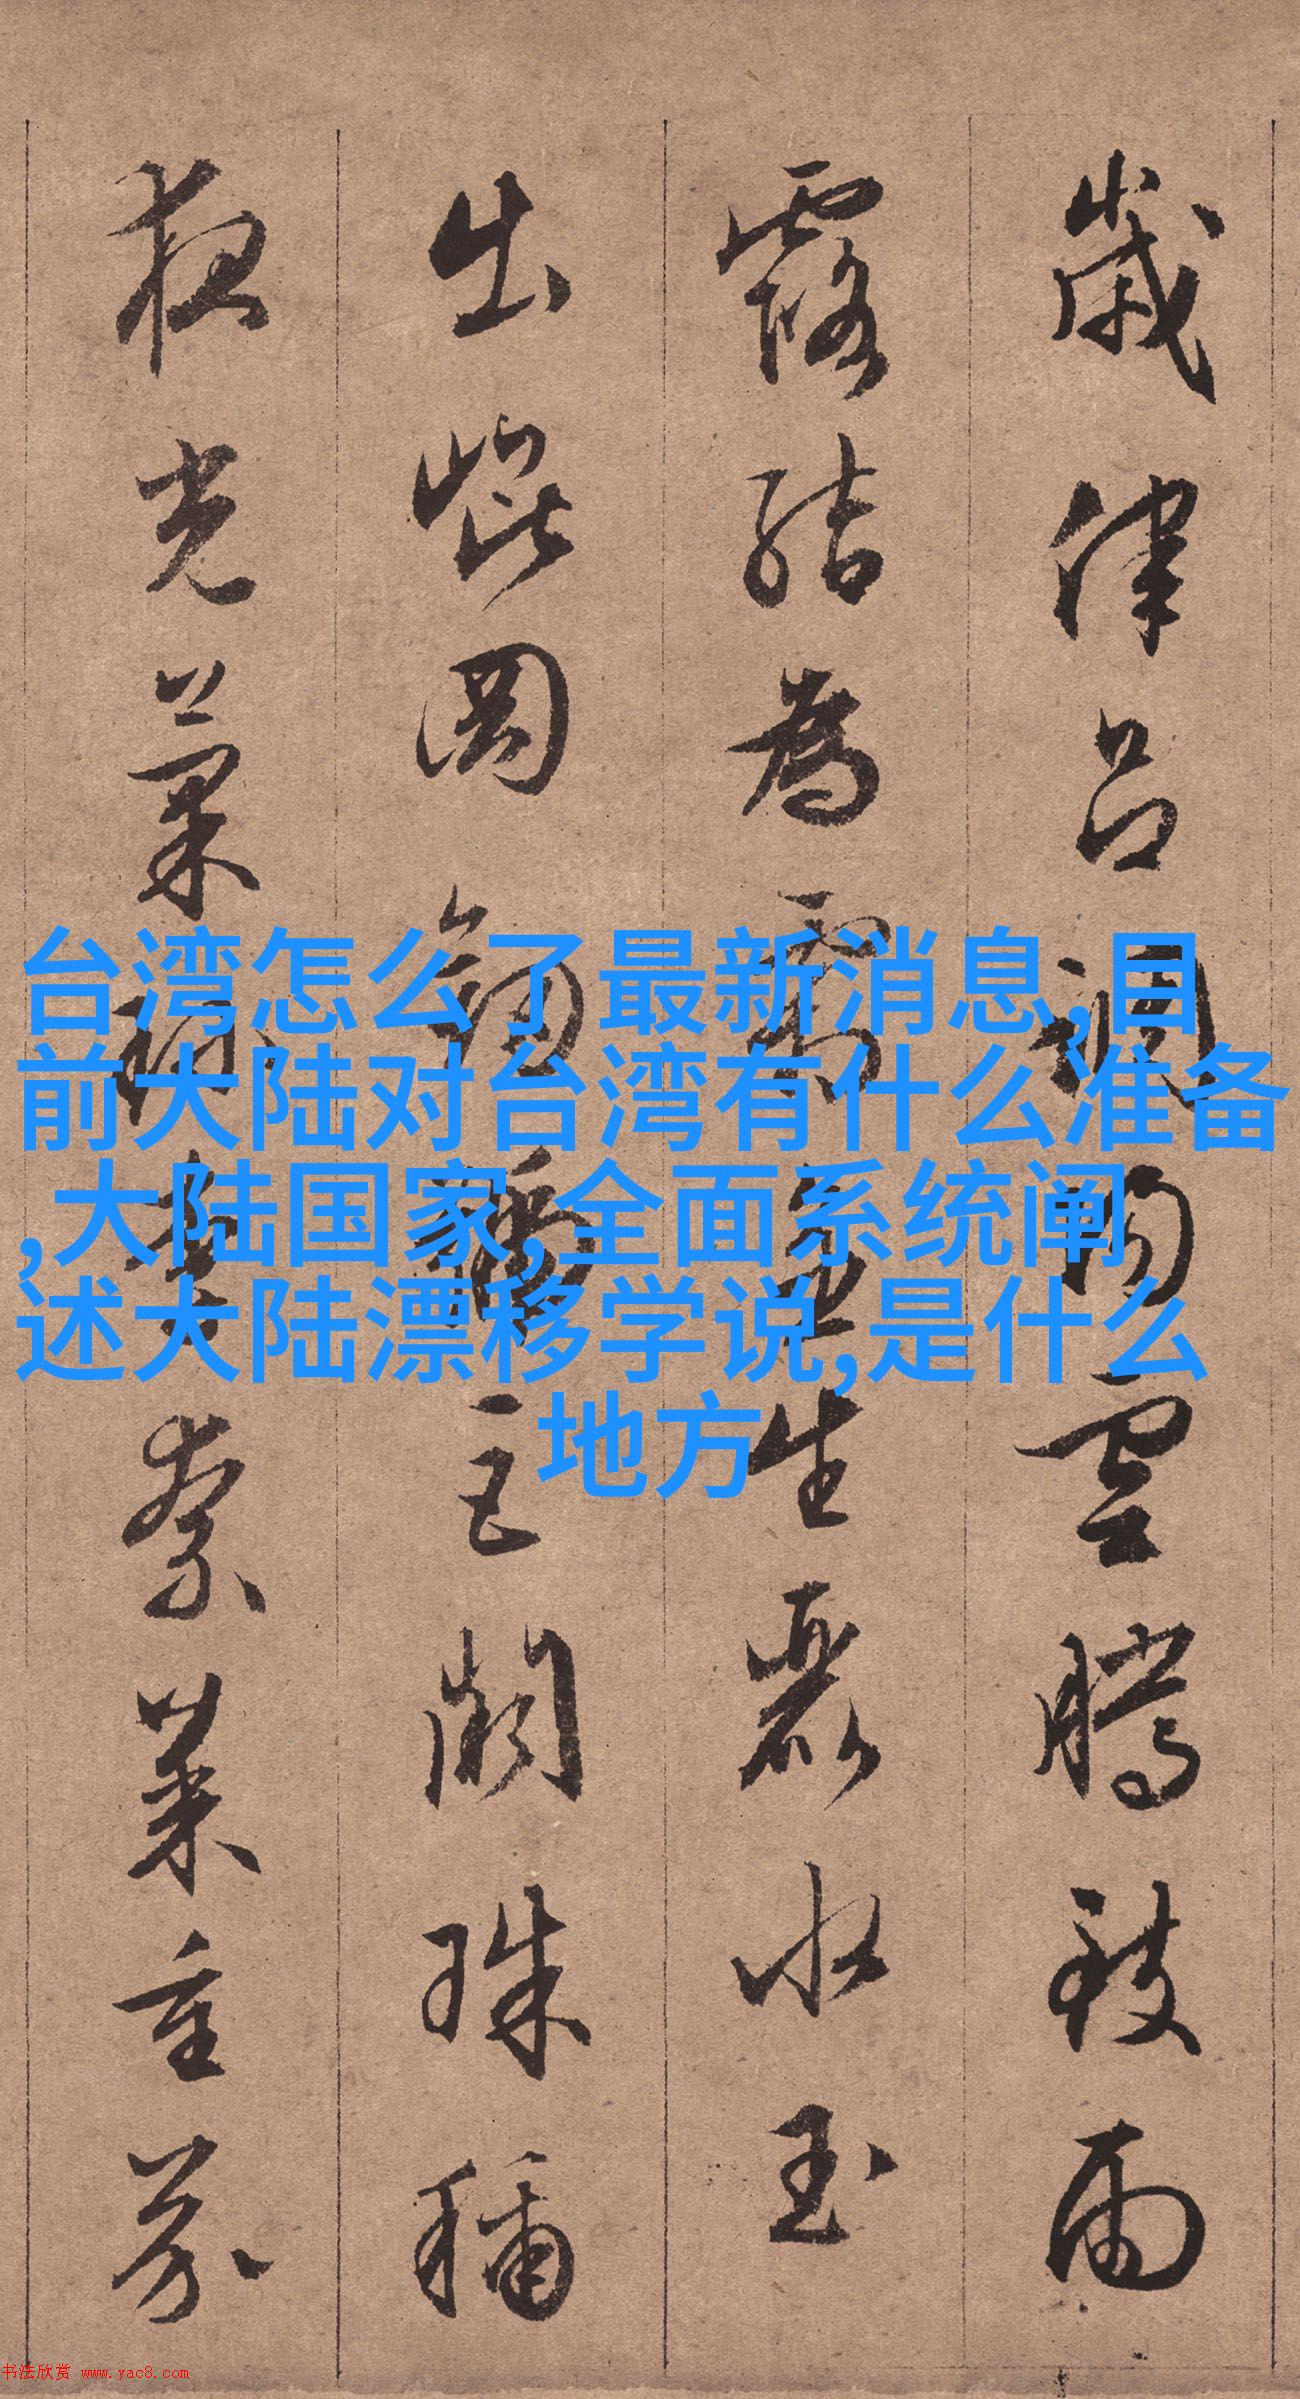 歲律呂調陽雲騰致雨
露結為霜金生麗水玉
出崐岡劍號巨闕珠稱
夜光菓珍李柰菜重芥
台湾怎么了最新消息,目
前大陆对台湾有什么准备
,大陆国家,全面系统阐
述大陆漂移学说,是什么
地方
书法欣赏 www.yac8.com